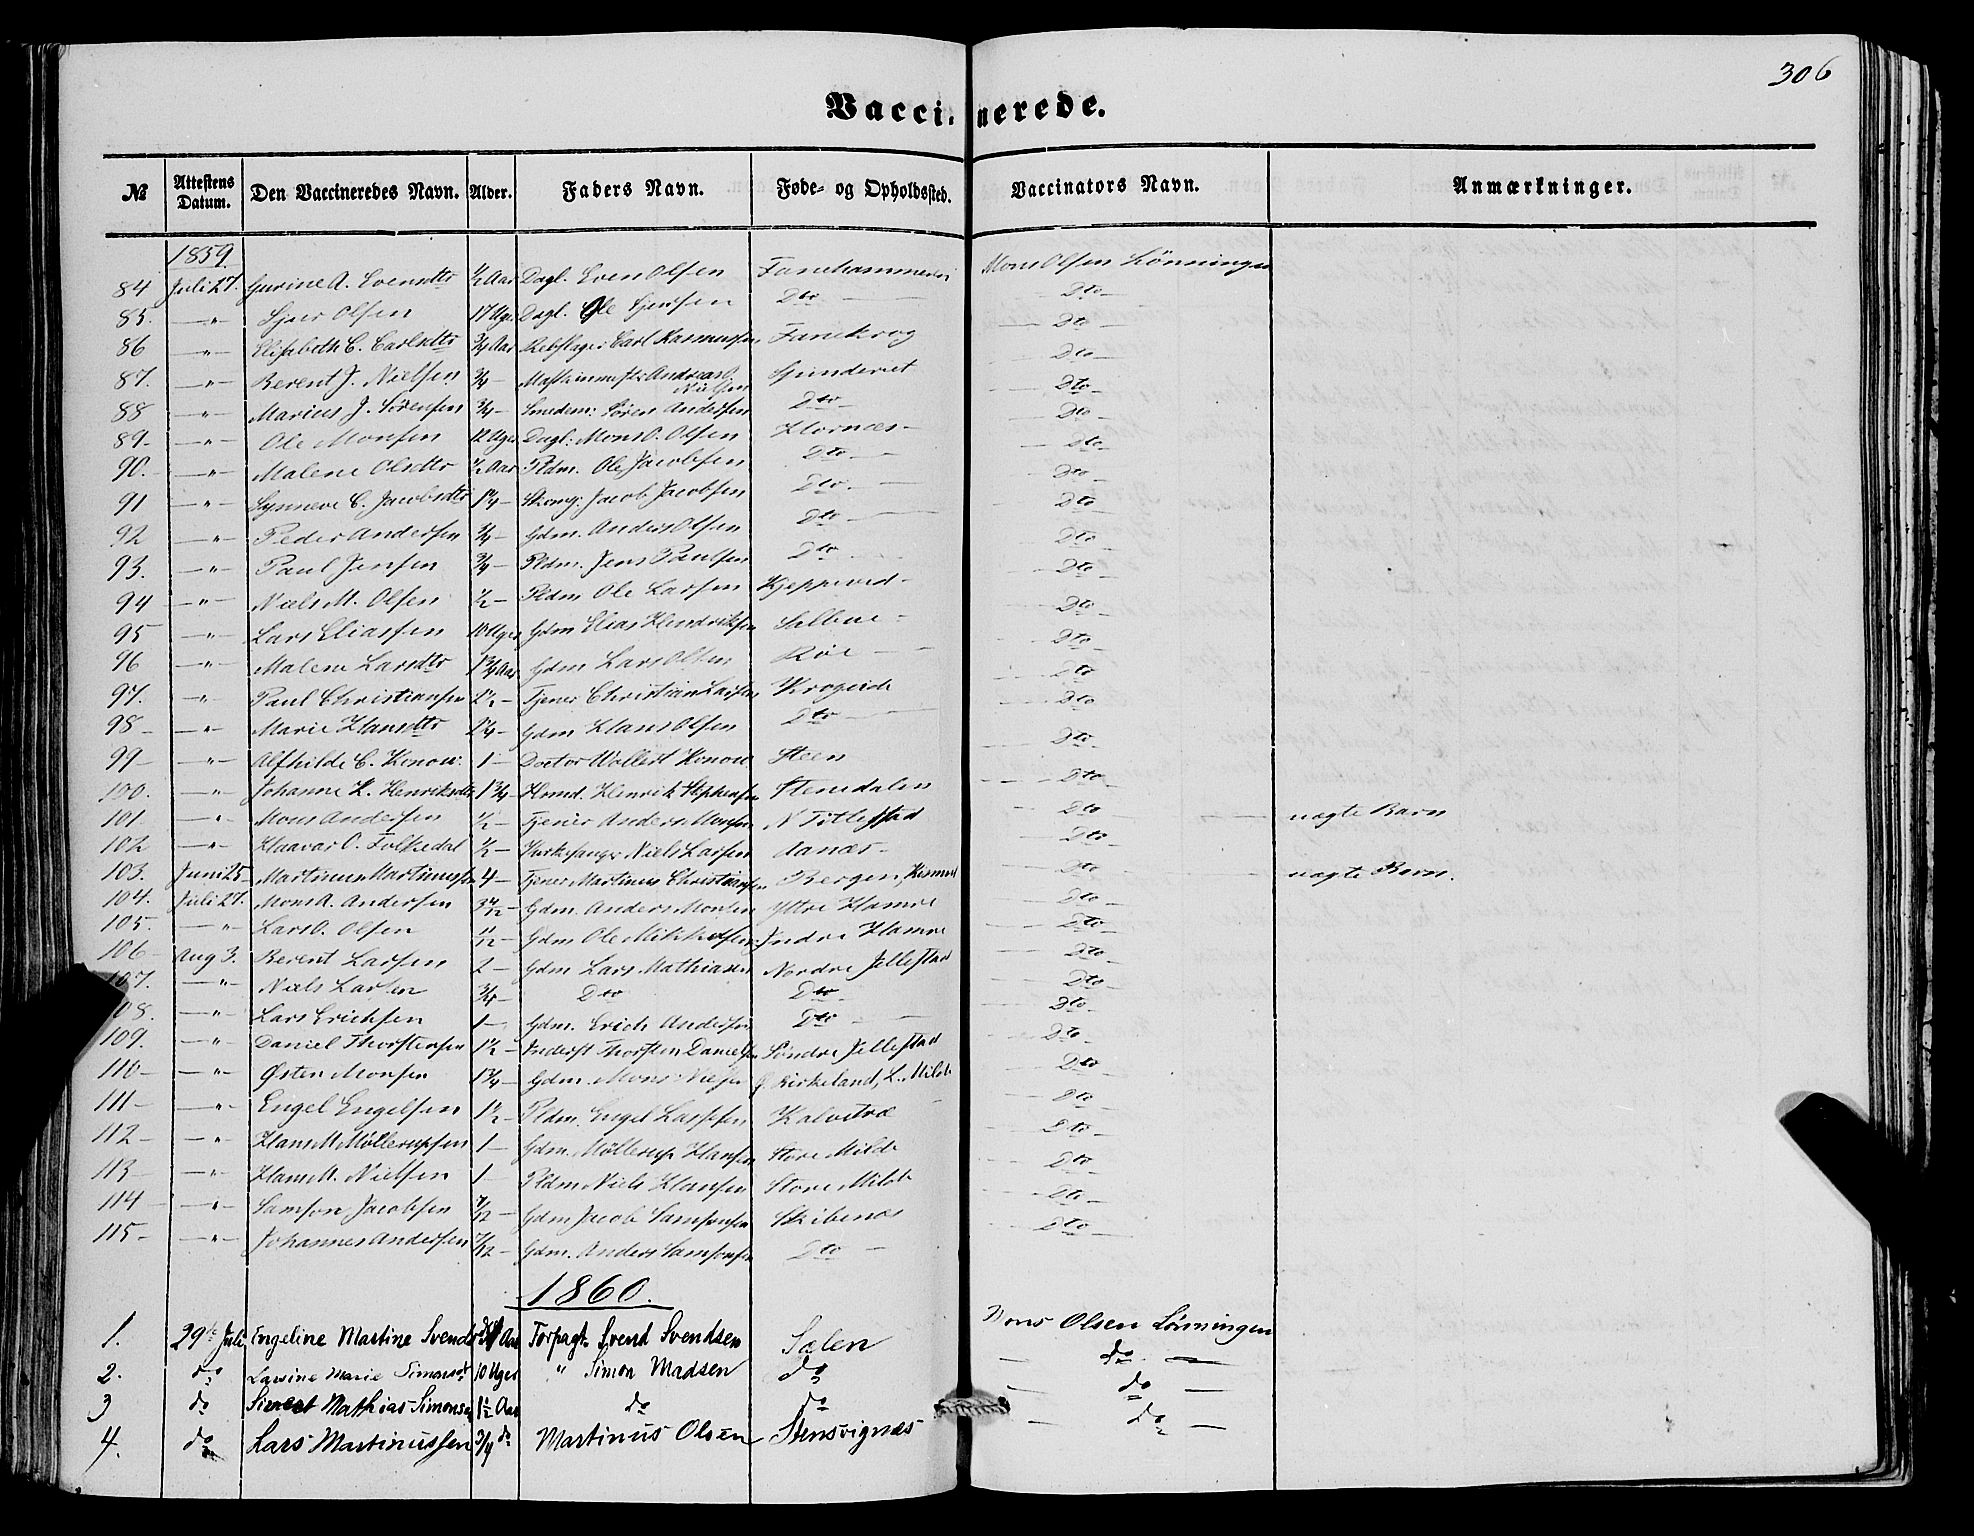 306
Vaccinerede.
№ Attestens Datum. Den Vaccineredes Navn. Alder. Faders Navn. Føde- og Opholdssted. Vaccinators Navn. Anmærkninger.
1859
84 Juli 27. Gurine A. Evensdtr ½ Aar Dagl. Even Olsen Mons Olsen Lønningen
85. —"— Sjur Olsen 17 Uger Dagl. Ole Sjursen Dto — Dto —
86 —"— Elisabeth C. Carlsdtr ¾ Aar Rebslager Carl Rasmussen Fanekrog — Dto —
87. —"— Berent J. Nielsen ¾ — Maskinmestr Andreas Nielsen — Dto —
88 —"— Marius J. Sørensen ¾ — Smedem: Søren Andersen Dto — Dto —
89 — —"— Ole Monsen 12 Uger Dagl: Mons O. Olsen Hornæs — Dto —
90. —"— Malene Olsdtr ½ Aar Pldm. Ole Jacobsen Dto — Dto —
91 —"— Synneve C. Jacobsdtr 1¼ — Jacob Jacobsen Dto. — Dto —
92 —"— Peder Andersen ¾ — Gdm. Anders Olsen Dto — Dto —
93. —"— Paul Jensen ¾ — Pldm. Jens Paulsen Dto — Dto —
94 —"— Niels M. Olsen ½ — Pldm Ole Larsen — Dto —
95 —"— Lars Eliassen 10 Uger Gdm Elias Hendriksen — Dto —
96 —"— Malene Larsdtr 1¾ Aar Gdm Lars Olsen Røe — Dto —
97. —"— Paul Christiansen 1½ — Tjener Christian Larsen Krogeide — Dto —
98 — —"— Marie Hansdtr 1¼ — Gdm Hans Olsen Dto — Dto —
99 — —"— Alfhilde C. Konow. 1 — Doctor Wollert Konow Steen — Dto —
100. —"— Johanne H. Henriksdtr 1¾ — Henrik Stephensen Stenedalen — Dto —
101 —"— Mons Andersen ½ — Tjener Anders Monsen N Titlestad — Dto — uægte Barn
102 —"— Haavar O. Folkedal ½ — Kirkesanger Niels Larsen — Dto —
103. Juni 25 Martinus Martinussen 4 — Tjener Martinus Christiansen Bergen, — Dto — uægte Barn.
104. Juli 27. Mons A. Andersen 3 4/12 — Gdm. Anders Monsen Ytre Hamre — Dto —
105. —"— Lars O. Olsen 11/12 — Gdm Ole Mikkelsen Indre Hamre — Dto —
106 — Aug 3. Berent Larsen 2 — Gdm Lars Mathiasen Nordre Jellestad — Dto —
107. —"— Niels Larsen ¾ — Dto Dto — Dto —
108. —"— Lars Erichsen 1 — Gdm. Erich Andersen Dto — Dto —
109. —"— Daniel Thorstensen 1½ — Inderst Thorsten Danielsen Søndre Jellestad — Dto —
110 — —"— Østen Monsen 1¾ — Gdm. Mons Kirkeland, L. Milde — Dto —
111 — —"— Engel Engelsen 1½ — Pldm. Engel Larsen Kalvetræ — Dto —
112 — —"— Hans M. Møllerupsen 1 — Gdm. Møllerup Hansen Store Milde — Dto —
113 — —"— Hans M. Nielsen 1 — Pldm Niels Hansen Store Milde — Dto —
114 —"— Samson Jacobsen 7/12 — Gdm Jacob Samsonsen Skibenæs — Dto —
115 — —"— Johannes Andersen 7/12 — Gdm. Anders Samsonsen Dto — Dto —
1860.
1. 29de Juli Engeline Martine Svends Aar Forpagt. Svend Svendsen Sælen Mons Olsen Lønningen
2. do Lavine Marie Simonsdt 10 Uger " Simon Madsen do — do —
3 do Mathias Simonsen 1½ Aar do do — do —
4. do Lars Martinussen ¾ do Martinus Olsen Stensvignæs — do —